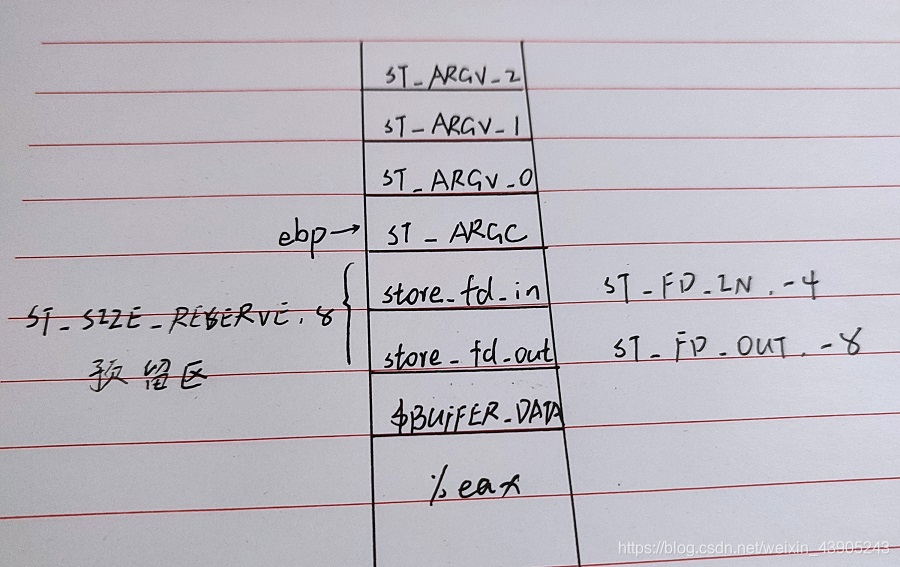 ST_ARGV_2
ST_ARGV_1
ST_ARGV_0
ebp→ ST_ARGC
store_fd_in ST_FD_IN.-4
ST_SIZE_RESERVE.8
store_fd_out ST_FD_OUT.-8
预留区
$BUFFER_DATA
%eax
https://blog.csdn.net/weixin_43905243